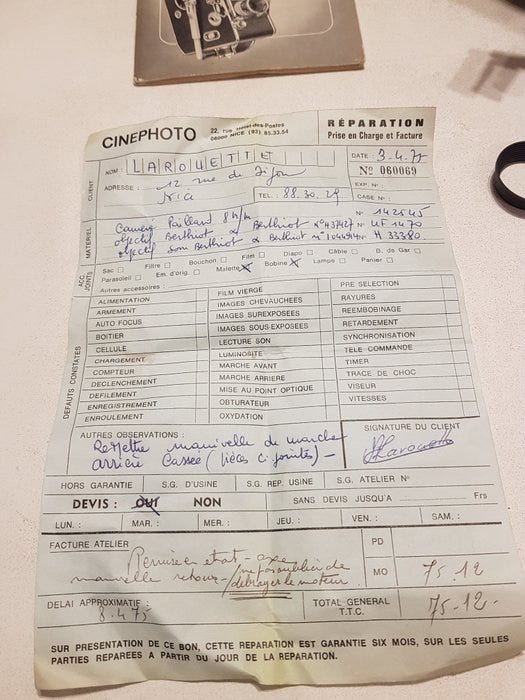 CINEPHOTO
22, Rue Hôtel-des-Postes
06000 NICE (93) 85.33.54
RÉPARATION
Prise en Charge et Facture
CLIENT
NOM : LAROUETTE
DATE : 3.4.75
Nº 060069
ADRESSE : 12 rue de Dijon
Nice
TEL : 88.30.29
EXP. Nº :
CASE Nº :
MATERIEL
Camera Paillard 8 m/m Nº 142545
objectif Berthiot Berthiot Nº
objectif Som Berthiot Berthiot nº Nº
ACC. JOINTS
Sac Filtre Bouchon Film Diapo Câble B. de Gar
Parasoleil Em. d'orig. Mallette Bobine Lampe Panier
Autres accessoires :
DEFAUTS CONSTATES
ALIMENTATION FILM VIERGE PRE SELECTION
ARMEMENT IMAGES CHEVAUCHEES RAYURES
AUTO FOCUS IMAGES SUREXPOSEES REEMBOBINAGE
BOITIER IMAGES SOUS-EXPOSEES RETARDEMENT
CELLULE LECTURE SON SYNCHRONISATION
CHARGEMENT LUMINOSITE TELE COMMANDE
COMPTEUR MARCHE AVANT TIMER
DECLENCHEMENT MARCHE ARRIERE TRACE DE CHOC
DEFILEMENT MISE AU POINT OPTIQUE VISEUR
ENREGISTREMENT OBTURATEUR VITESSES
ENROULEMENT OXYDATION
AUTRES OBSERVATIONS :
Remettre manivelle de marche
arrière Cassée (pièces ci jointes) -
SIGNATURE DU CLIENT
HORS GARANTIE S.G. D'USINE S.G. REP. USINE S.G. ATELIER Nº
DEVIS : OUI NON SANS DEVIS JUSQU'A Frs
LUN. : MAR. : MER. : JEU. : VEN. : SAM. :
FACTURE ATELIER
Remise en état - axe
manivelle retour - ne pas oublier de
débrayer le moteur
PD
MO 75.12
DELAI APPROXIMATIF :
8.4.75
TOTAL GENERAL
T.T.C. 75.12-
SUR PRESENTATION DE CE BON, CETTE REPARATION EST GARANTIE SIX MOIS, SUR LES SEULES
PARTIES REPAREES A PARTIR DU JOUR DE LA REPARATION.